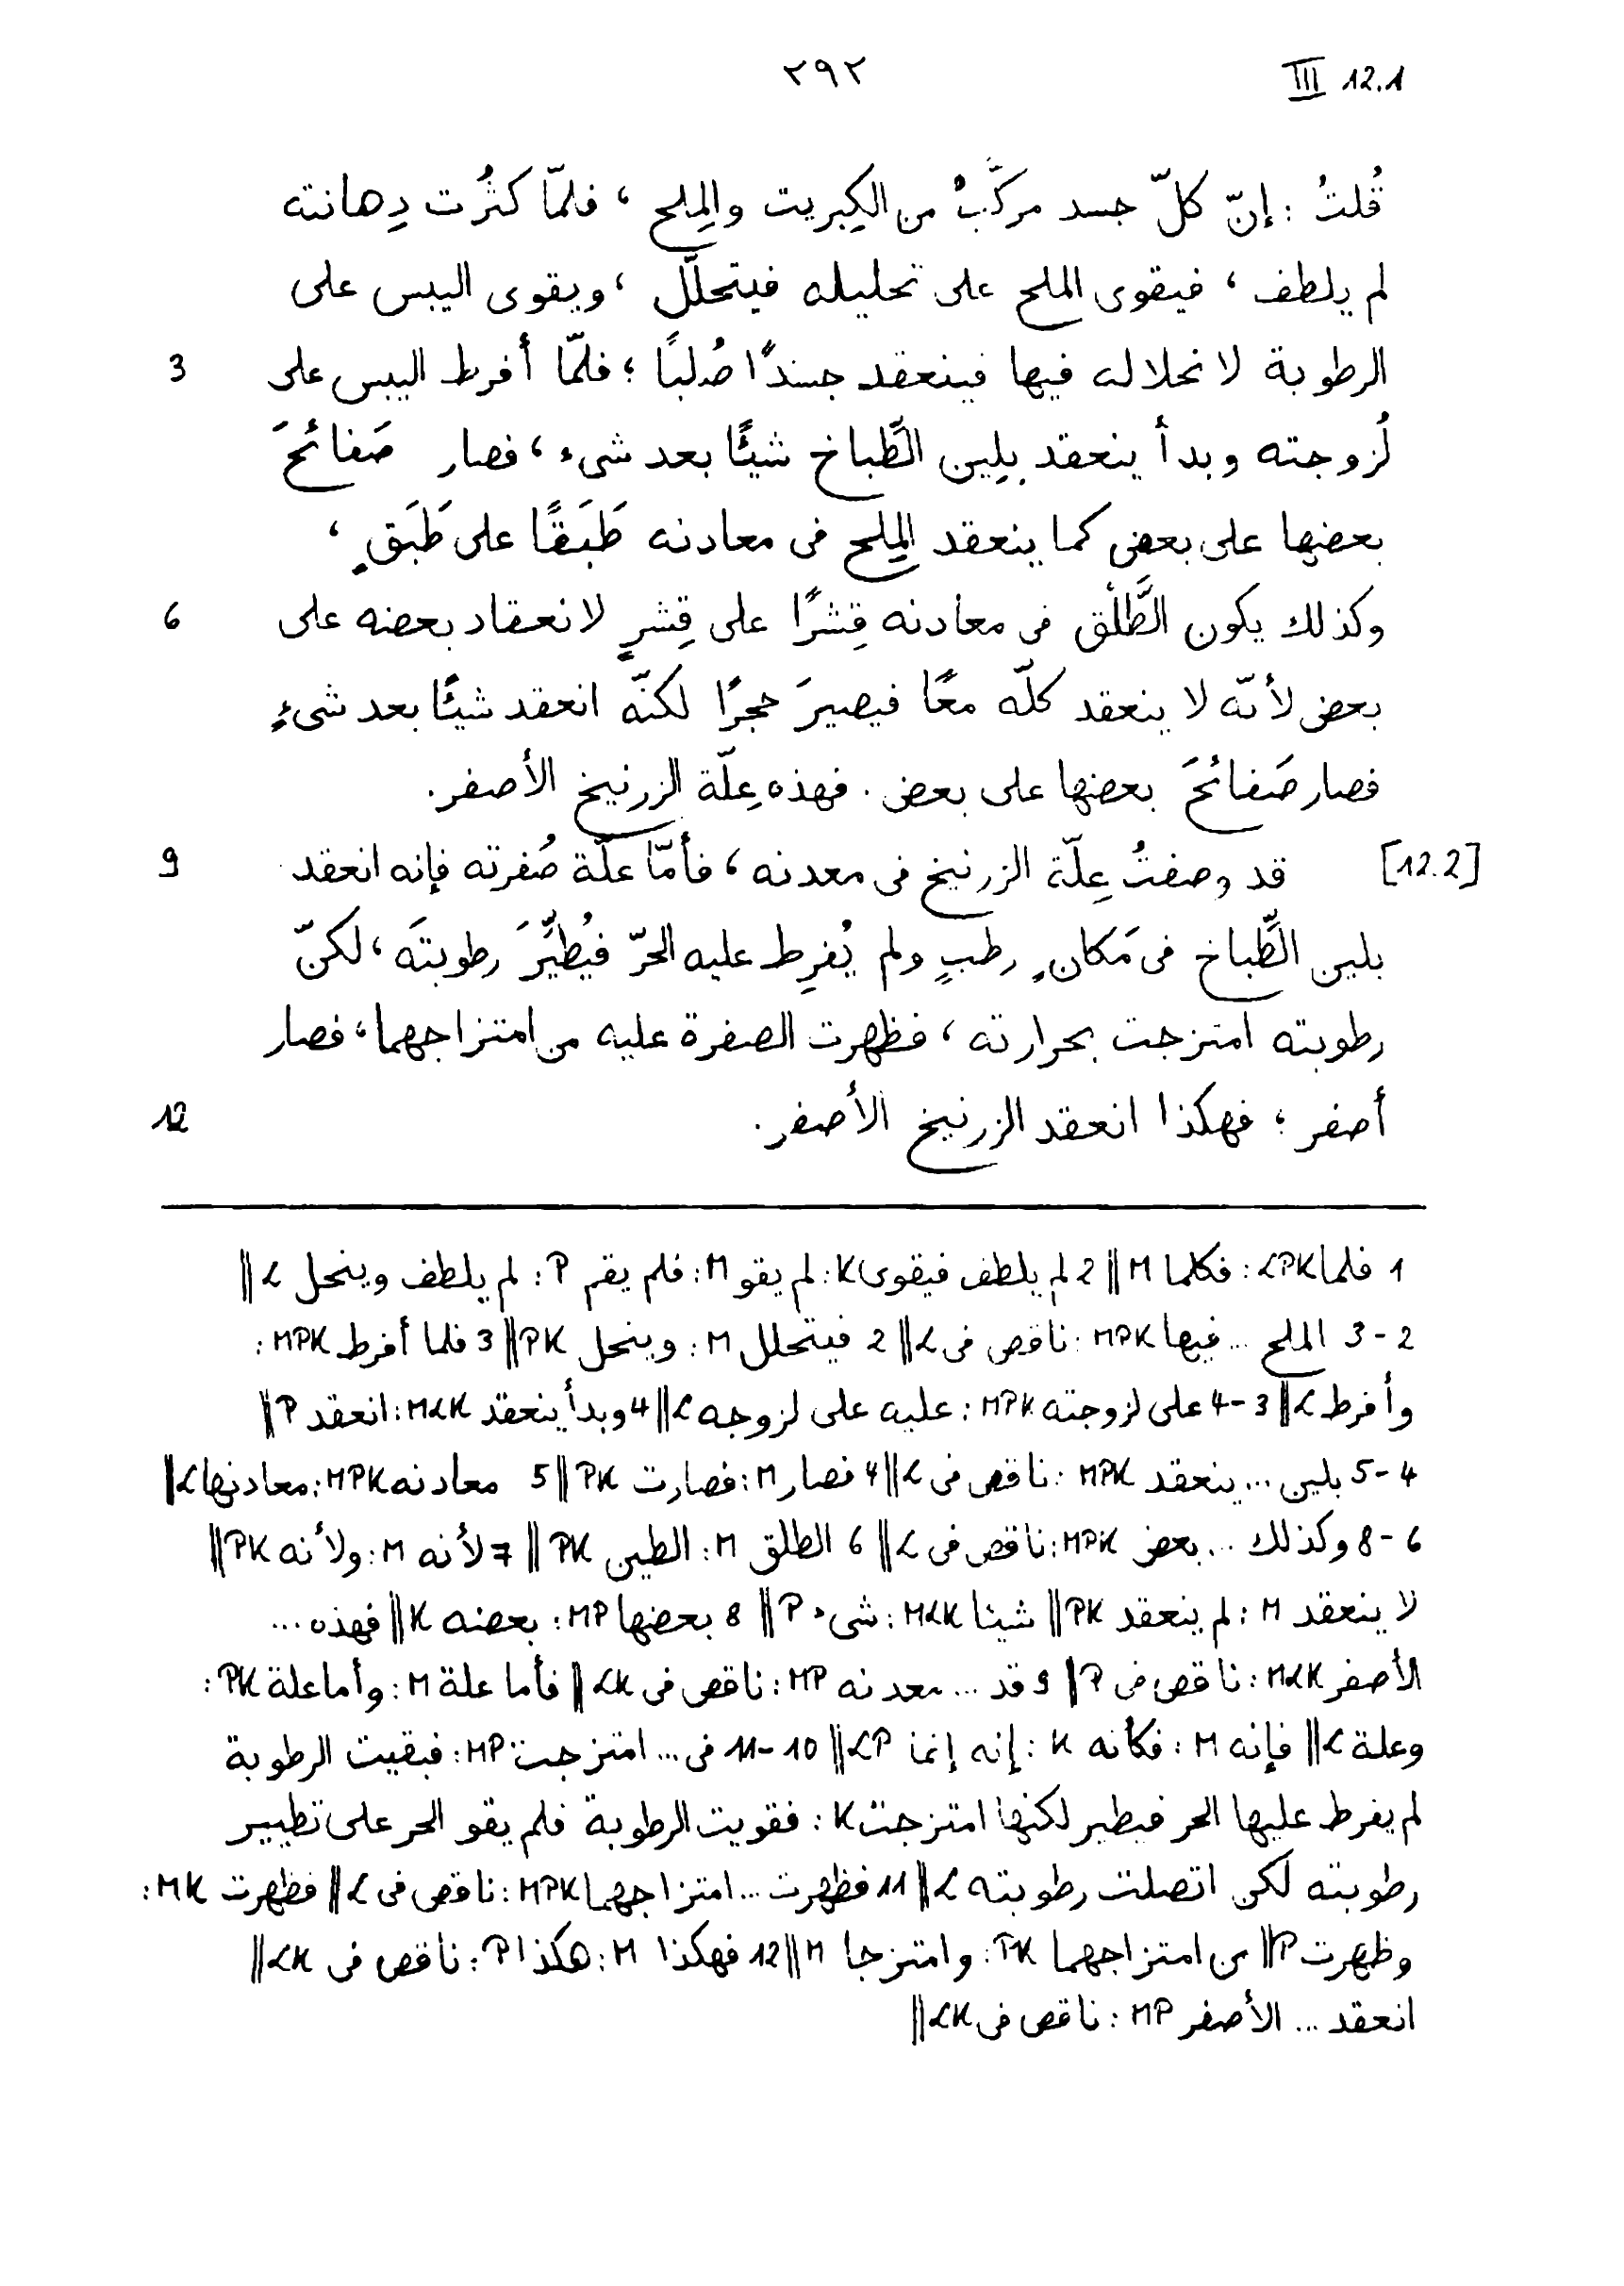 ٢٩٢
III 12.1
قُلتُ : إنّ كلّ جسد مركَّبٌ من الكِبريت والمِلح ، فلمّا كثُرت دِهانته
لم يلطف ، فيقوى الملح على تحليله فيتحلّل ، ويقوى اليبس على
3 الرطوبة لانحلاله فيها فينعقد جسدًا صُلبًا ؛ فلمّا أفرط اليبس على
لُزوجته وبدأ ينعقد بلِين الطَّباخ شيئًا بعد شىء ، فصار صَفائحَ
بعضها على بعض كما ينعقد المِلح فى معادنه طَبَقًا على طَبَقٍ ،
6 وكذلك يكون الطَّلْق فى معادنه قِشرًا على قِشرٍ لانعقاد بعضه على
بعض لأنّه لا ينعقد كلّه معًا فيصيرَ حجرًا لكنّه انعقد شيئًا بعد شىءٍ
فصار صَفائحَ بعضها على بعض . فهذه عِلّة الزرنيخ الأصفر.
9 [12.2] قد وصفتُ عِلّة الزرنيخ فى معدنه ، فأمّا علّة صُفرته فإنه انعقد
بلين الطَّباخ فى مَكانٍ رطبٍ ولم يُفرِط عليه الحرّ فيُطيِّرَ رطوبتَه ، لكنّ
رطوبته امتزجت بحرارته ، فظهرت الصفرة عليه من امتزاجهما ، فصار
12 أصفر ؛ فهكذا انعقد الزرنيخ الأصفر.
1 فلما LPK : فكلما M || 2 لم يلطف فيقوى K : لم يقو M : فلم يقم P : لم يلطف وينحل L ||
2-3 الملح ... فيها MPK : ناقص فى L || 2 فيتحلل M : وينحل PK || 3 فلما أفرط MPK :
وأفرط L || 3-4 على لزوجته MPK : عليه على لزوجه L || 4 وبدأ ينعقد MLK : انعقد P ||
4-5 بلين ... ينعقد MPK : ناقص فى L || 4 فصار M : فصارت PK || 5 معادنه MPK : معادنها L ||
6-8 وكذلك ... بعض MPK : ناقص فى L || 6 الطلق M : الطين PK || 7 لأنه M : ولأنه PK ||
لا ينعقد M : لم ينعقد PK || شيئا MLK : شىء P || 8 بعضها MP : بعضه K || فهذه ...
الأصفر MLK : ناقص فى P || 9 قد ... معدنه MP : ناقص فى LK || فأما علة M : وأما علة PK :
وعلة L || فإنه M : فكأنه K : إنه إنما LP || 10-11 فى ... امتزجت MP : فبقيت الرطوبة
لم يفرط عليها الحر فيطير لكنها امتزجت K : فقويت الرطوبة فلم يقو الحر على تطيير
رطوبته لكن اتصلت رطوبته L || 11 فظهرت ... امتزاجهما MPK : ناقص فى L || فظهرت MK :
وظهرت P || من امتزاجهما PK : وامتزجا M || 12 فهكذا M : هكذا P : ناقص فى LK ||
انعقد ... الأصفر MP : ناقص فى LK ||